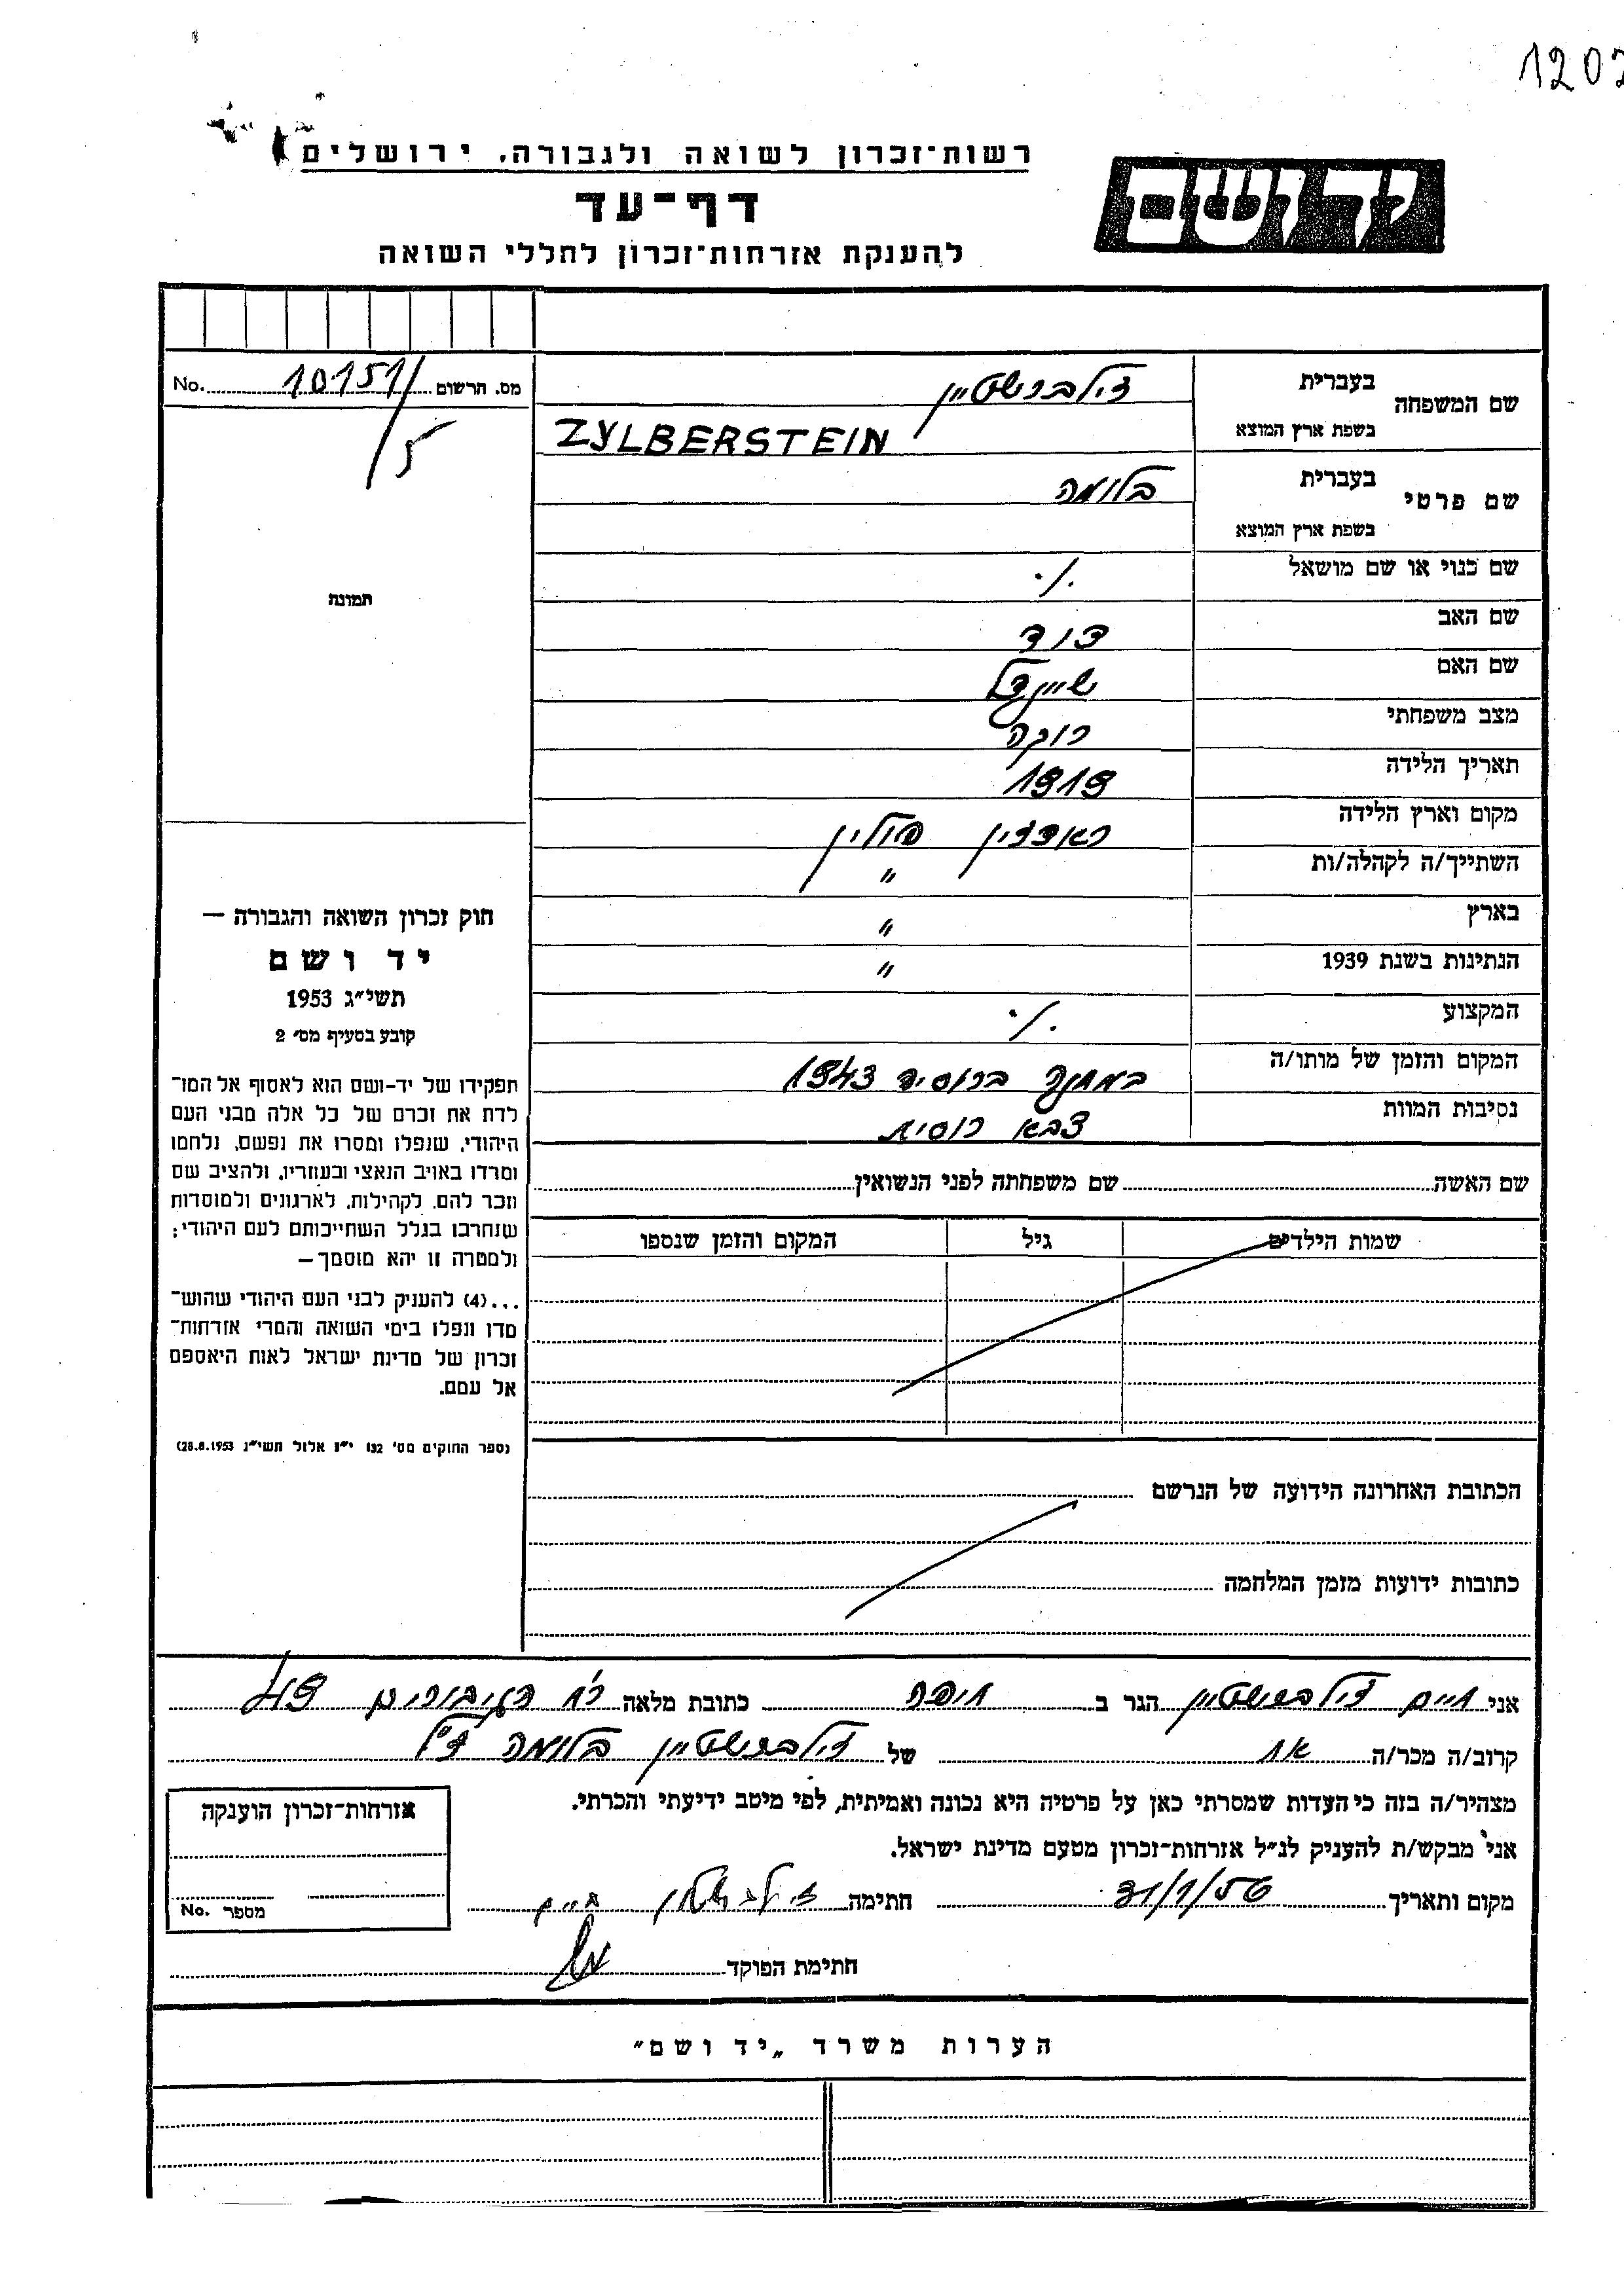 1202
רשות־זכרון לשואה ולגבורה, ירושלים
יד ושם
דף־עד
להענקת אזרחות־זכרון לחללי השואה
מס. הרשום 10151/5 No.
שם המשפחה בעברית זילברשטיין
בשפת ארץ המוצא ZYLBERSTEIN
שם פרטי בעברית בלומה
בשפת ארץ המוצא
שם כנוי או שם מושאל ./.
שם האב דוד
שם האם שיינדל
מצב משפחתי רווקה
תאריך הלידה 1919
מקום וארץ הלידה ראדזין פולין
השתייך/ה לקהלה/ות "
בארץ "
הנתינות בשנת 1939 "
המקצוע ./.
המקום והזמן של מותו/ה ברוסיה 1943
נסיבות המוות צבא רוסית
תמונה
חוק זכרון השואה והגבורה —
יד ושם
תשי״ג 1953
קובע בסעיף מס׳ 2
תפקידו של יד-ושם הוא לאסוף אל המו־
לדת את זכרם של כל אלה מבני העם
היהודי, שנפלו ומסרו את נפשם, נלחמו
ומרדו באויב הנאצי ובעוזריו, ולהציב שם
וזכר להם, לקהילות, לארגונים ולמוסדות
שנחרבו בגלל השתייכותם לעם היהודי;
ולמטרה זו יהא מוסמך —
...(4) להעניק לבני העם היהודי שהוש־
מדו ונפלו בימי השואה והמרי אזרחות־
זכרון של מדינת ישראל לאות היאספם
אל עמם.
(ספר החוקים מס׳ 132 י״ז אלול תשי״ג 28.8.1953)
שם האשה שם משפחתה לפני הנשואין
שמות הילדים גיל המקום והזמן שנספו
הכתובת האחרונה הידועה של הנרשם
כתובות ידועות מזמן המלחמה
אני חיים זילברשטיין הגר ב חיפה כתובת מלאה רח הגיבורים 49
קרוב/ה מכר/ה אח של זילברשטיין בלומה ז"ל
מצהיר/ה בזה כי העדות שמסרתי כאן על פרטיה היא נכונה ואמיתית, לפי מיטב ידיעתי והכרתי.
אני מבקש/ת להעניק לנ״ל אזרחות־זכרון מטעם מדינת ישראל.
מקום ותאריך 31/1/56 חתימה זילברשטיין חיים
חתימת הפוקד
אזרחות־זכרון הוענקה
מספר No.
הערות משרד „יד ושם״